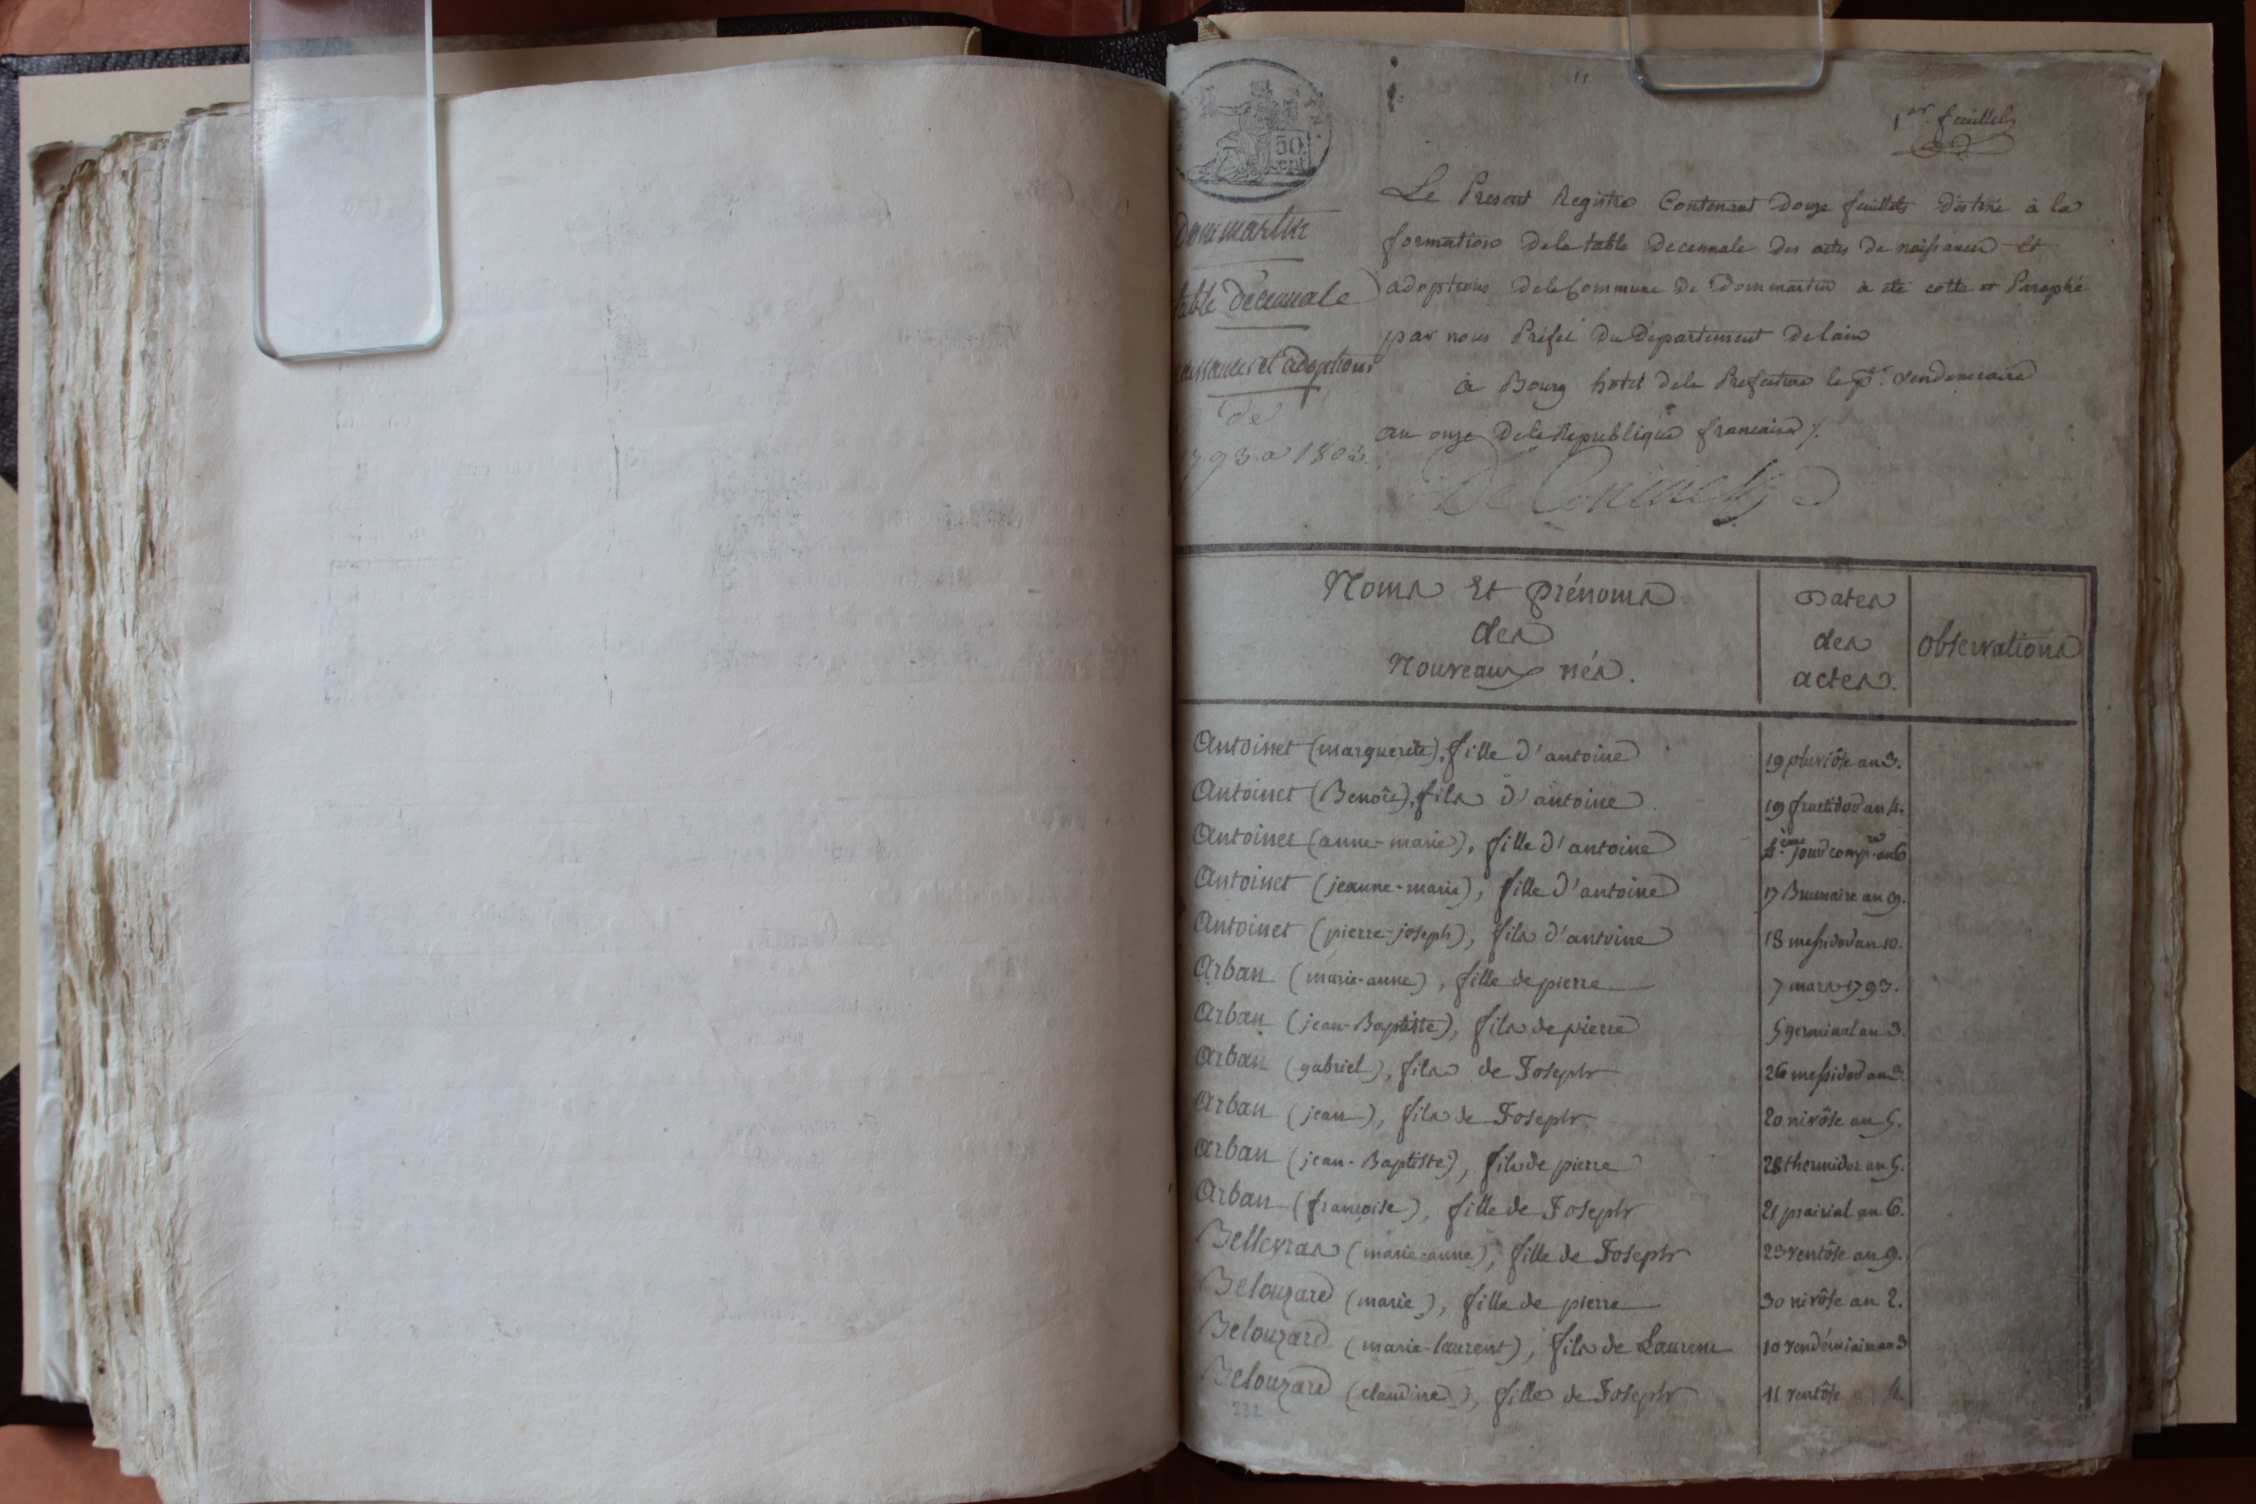 1er feuillet
50
cent
Dommartin
table décennale
naissances et adoptions
de
1793 a 1803
Le Present Registre Contenant Douze feuillets Destiné à la
formation Dela table Decennale Des actes De naissances Et
adoptions Dela Commune De Dommartin à été cotté et Paraphé
par nous Préfet Du Département Delain
à Bourg hotel Dela Prefecture le pr. vendemiaire
an onze Dela Republique francaise ./.
Noms Et prénoms
des
Nouveaux nés.
Dates
des
actes.
observations
Antoinet (marguerite), fille d'antoine 19 pluviôse an 3.
Antoinet (Benoît), fils d'antoine 19 fructidor an 4.
Antoinet (anne-marie), fille d'antoine 4.ème jour compre an 6
Antoinet (jeanne-marie), fille d'antoine 17 Brumaire an 9.
Antoinet (pierre-joseph), fils d'antoine 18 messidor an 10.
Arban (marie-anne), fille de pierre 7 mars 1793.
Arban (jean-Baptiste), fils de pierre 5 germinal an 3.
Arban (gabriel), fils de Joseph 26 messidor an 3.
Arban (jean), fils de Joseph 20 nivôse an 5.
Arban (jean-Baptiste), fils de pierre 28 thermidor an 5.
Arban (françoise), fille de Joseph 21 prairial an 6.
Bellevras (marie-anne), fille de Joseph 23 ventôse an 9.
Belouzard (marie), fille de pierre 30 nivôse an 2.
Belouzard (marie-laurent), fils de Laurent 10 vendémiaire an 3
Belouzard (claudine), fille de Joseph 11 ventôse 4.
232